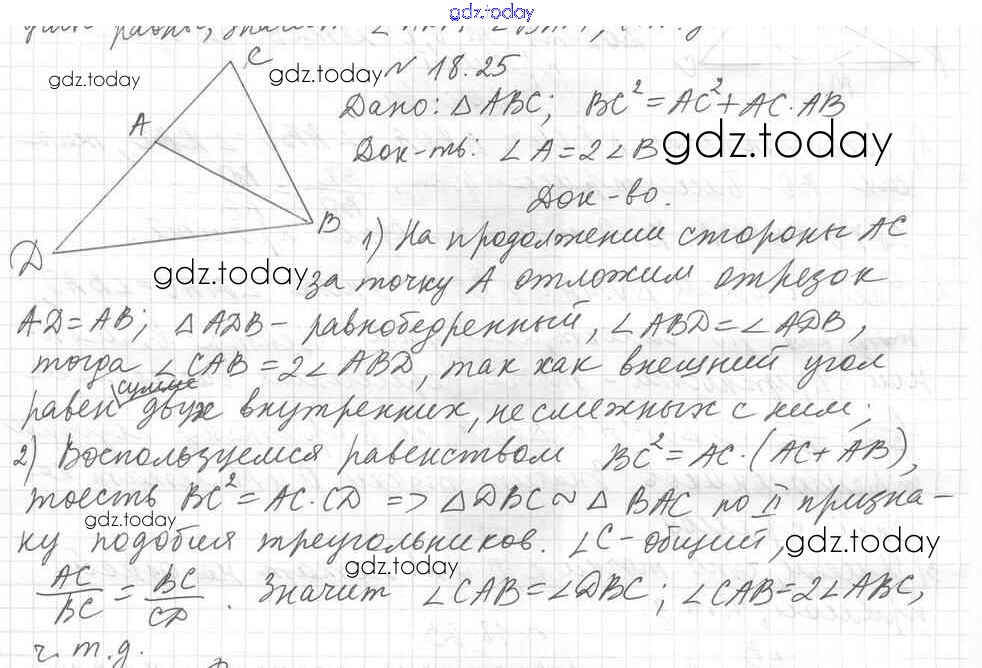 gdz.today
gdz.today
C
gdz.today
№ 18.25
A
Дано: △ABC; BC² = AC² + AC·AB
Док-ть: ∠A = 2∠B
gdz.today
Док-во.
B
D
1) На продолжении стороны AC
gdz.today
за точку A отложим отрезок
AD = AB; △ADB – равнобедренный, ∠ABD = ∠ADB,
тогда ∠CAB = 2∠ABD, так как внешний угол
равен сумме двух внутренних, не смежных с ним;
2) Воспользуемся равенством BC² = AC·(AC + AB),
тоесть BC² = AC·CD => △DBC ~ △BAC по II призна-
gdz.today
ку подобия треугольников. ∠C – общий,
gdz.today
gdz.today
AC/BC = BC/CD. Значит ∠CAB = ∠DBC; ∠CAB = 2∠ABC,
ч.т.д.